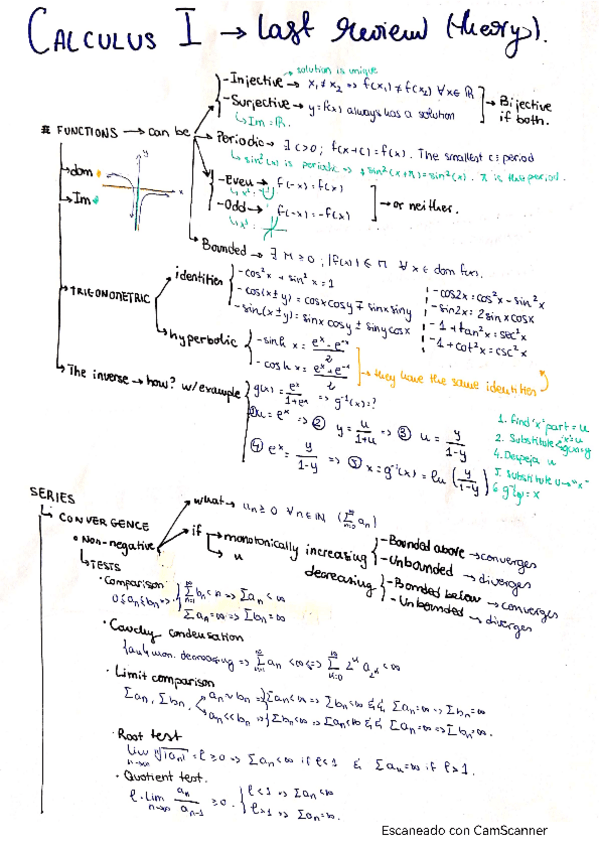 CALCULUS I → last review (theory).
solution is unique
-Injective → x₁ ≠ x₂ => f(x₁) ≠ f(x₂) ∀x∈ℝ
-Surjective → y=f(x) always has a solution
→ Bijective if both.
↳ Im = ℝ.
# FUNCTIONS → can be
Periodic → ∃ c>0; f(x+c)=f(x). The smallest c = period
↳ sin²(x) is periodic => sin²(x+π)=sin²(x). π is the period.
→ dom
→ Im
y
x
-Even → f(-x)=f(x)
↳ x²:
-Odd → f(-x)=-f(x)
↳ x³:
→ or neither.
Bounded → ∃ M≥0, |f(x)| ≤ M ∀x∈ dom
→ TRIGONOMETRIC
identities
-cos²x + sin²x = 1
-cos(x±y) = cosxcosy ∓ sinxsiny
-sin(x±y) = sinxcosy ± sinycosx
-cos2x = cos²x - sin²x
-sin2x = 2sinxcosx
-1+tan²x = sec²x
-1+cot²x = csc²x
hyperbolic
-sinh x = (eˣ - e⁻ˣ)/2
-cosh x = (eˣ + e⁻ˣ)/2
→ they have the same identities
→ The inverse → how? w/example
g(x) = eˣ/(1+eˣ) => g⁻¹(x)=?
① u = eˣ => ② y = u/(1+u) => ③ u = y/(1-y)
④ eˣ = y/(1-y) => ⑤ x = g⁻¹(x) = ln(y/(1-y))
1. Find "x" part = u
2. Substitute
4. Despeja u
5. Substitute u → "x"
SERIES
↳ CONVERGENCE
• Non-negative
what → ∀n∈ℕ
if → monotonically increasing
-Bounded above → converges
-Unbounded → diverges
decreasing
-Bounded below → converges
-Unbounded → diverges
↳ TESTS
· Comparison
0≤aₙ≤bₙ =>
∑bₙ<∞ => ∑aₙ<∞
∑aₙ=∞ => ∑bₙ=∞
· Cauchy condensation
mon. decreasing => ∑aₙ <∞ <=> ∑2ᵏ a₂ᵏ <∞
· Limit comparison
∑aₙ, ∑bₙ
aₙ∼bₙ => ∑aₙ<∞ => ∑bₙ<∞ & ∑aₙ=∞ => ∑bₙ=∞
aₙ<<bₙ => ∑bₙ<∞ => ∑aₙ<∞ & ∑aₙ=∞ => ∑bₙ=∞.
· Root test
lim n→∞ ⁿ√|aₙ| = ℓ ≥ 0 => ∑aₙ<∞ if ℓ<1 & ∑aₙ=∞ if ℓ>1.
· Quotient test.
ℓ = lim n→∞ aₙ/aₙ₋₁ ≥ 0.
ℓ<1 => ∑aₙ<∞
ℓ>1 => ∑aₙ=∞.
Escaneado con CamScanner